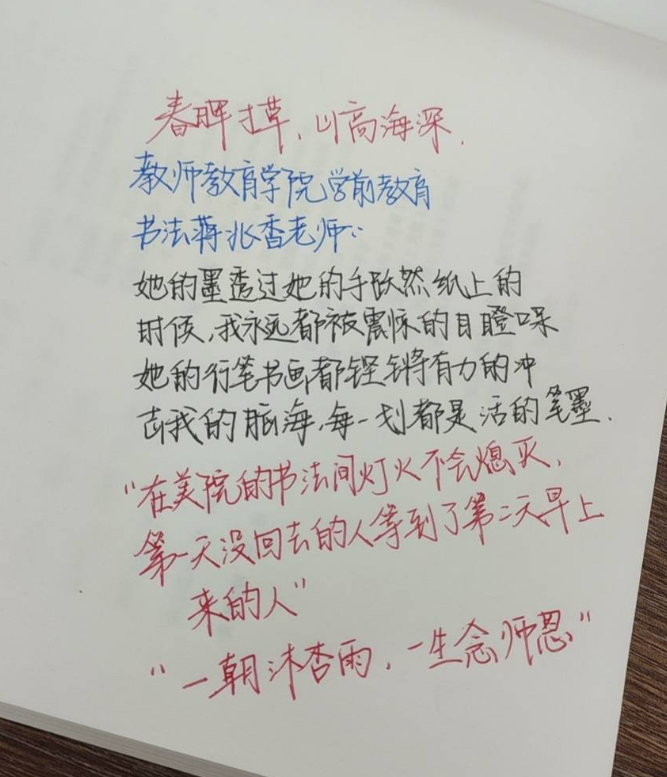 春晖寸草,山高海深.
教师教育学院学前教育
书法蒋兆香老师:
她的墨透过她的手跃然纸上的
时候,我永远都被震惊的目瞪口呆
她的行笔书画都铿锵有力的冲
击我的脑海,每一划都是活的笔墨.
"在美院的书法间灯火不会熄灭,
第一天没回去的人等到了第二天早上
来的人"
"一朝沐杏雨,一生念师恩"